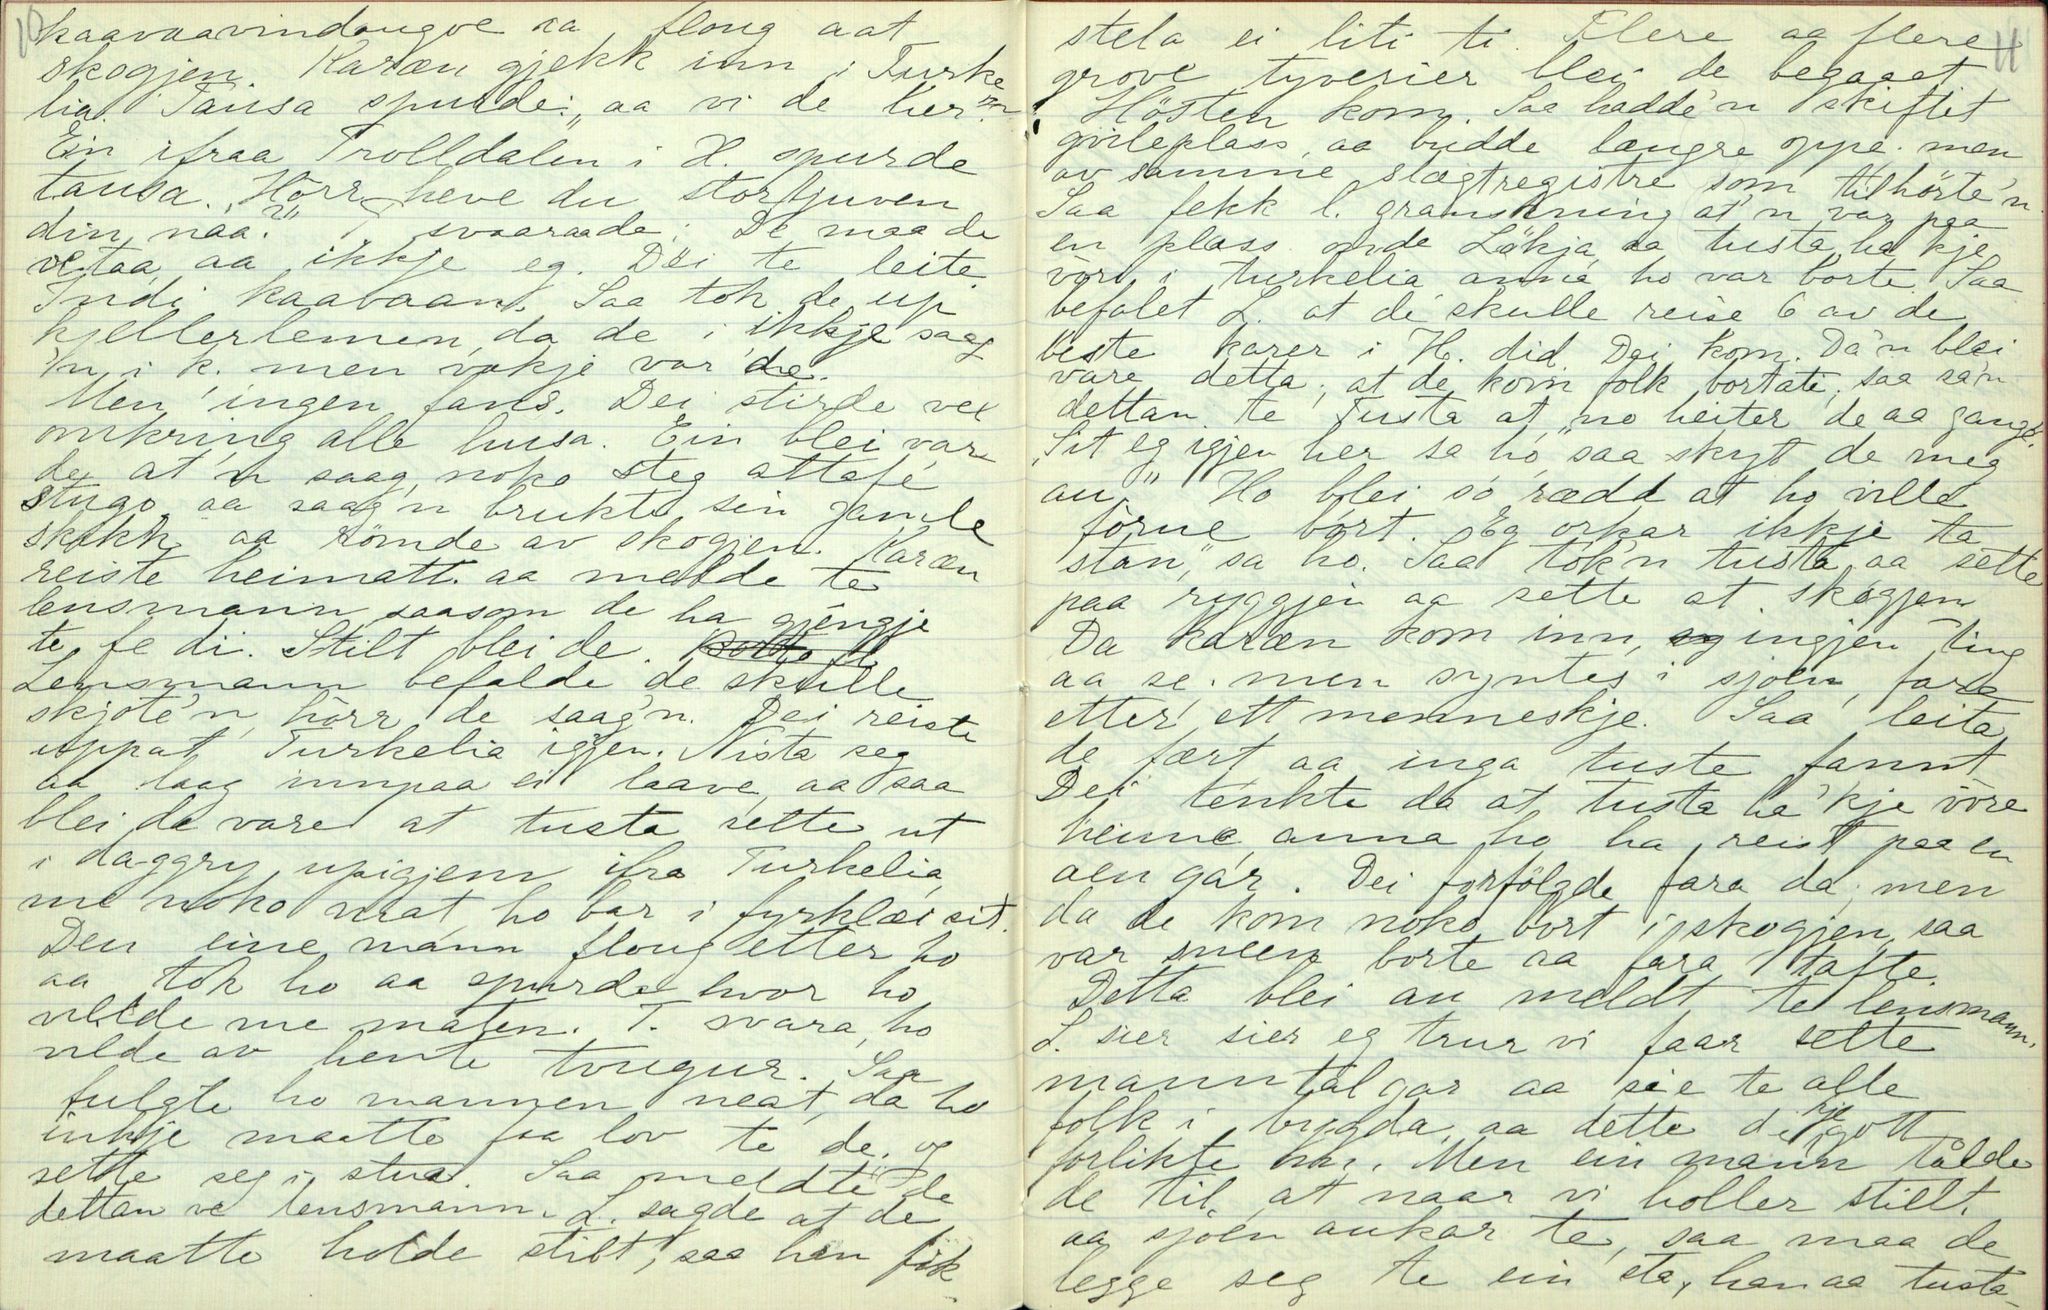 10
kaavaavindaugoe aa floug aat
skogjen. Karæn gjekk inn i Turke
lia. Tausa spurde: „aa vi de her?"
Ein ifraa Trolldalen i H. spurde
tausa. Hörr heve du storkjuven
din naa?" T svaaraade: De maa de
vetaa, aa ikkje eg. Dei te leite
Indi kaavaan. Saa tok de up
kjellerlemen, da de i ikkje saag
'n i k. men vakje var de.
Men ingen fans. Dei stirde vel
omkring alle husa. Ein blei var
de at'n saag noko steg attafe
stugo aa saag'n brukte sin gamle
skikk aa römde av skogjen. Karæn
reiste heimatt. aa melde te
lensmann saasom de ha gjengje
te fe di. Stilt blei de.
Lensmann befalde de skulle
skjote'n, hörr de saag'n. Dei reiste
uppat Turkelia igjen. Nista seg
aa laag innpaa ei laave, aa saa
blei de vare at tusta sette ut
i daggry upigjem ifra Turkelia,
me noko mat, ho bar i fyrklæi sit.
Den eine mann floug etter ho
aa tok ho aa spurde hvor ho
vilde me maten. T. svara, ho
vilde av hente tougur. Saa
fulgte ho mannen neat, da ho
inkje maatte faa lov te de, og
sette seg i stua. Saa meldte de
dettan ve lensmann. L. sagde at de
maatte holde stilt, saa han fik
11
stela ei liti ti. Flere aa flere
grove tyverier blei de begaaet
Hösten kom. Saa hadde'n skiftet
gvileplass, aa budde længre oppe. men
av samme slægtregistre som tilhörte'n.
Saa fekk l. granskning at'n var paa
en plass onde Lökja, aa tusta ha kje
vöri i Turkelia anna ho var borte. Saa
befalet L. at de skulle reise 6 av de
beste karer i H. did. Dei kom. Da'n blei
vare detta, at de kom folk bortati, saa sa'n
dettan te Tusta at „no heiter de aa gange.
„Sit eg igjen her sa ho, „saa skyt de meg
au." Ho blei so rædd at ho ville
förne bort. „Eg orkar ikkje ta
stan," sa ho. Saa tok'n tusta aa sette
paa ryggjen aa sette at skogjen
Da karæn kom inn, ingjen ting
aa se. men syntes i sjoen fara
etter ett menneskje. Saa leita
de fært aa inga tuste fannt
Dei tenkte da at tusta ha'kje vöre
heime, anna ho ha reist paa en
aen gar. Dei forfölgde fara da; men
da de kom noko bort i skogjen, saa
var sneen borte aa fara tafte.
Detta blei au meldt te lensmann.
L. sier sier eg trur vi faar sette
manntalgar aa sie te alle
folk i bygda, aa dette di kje gott
forlikte han. Men ein mann talde
de til, at naar vi holler stilt.
aa sjoen aukar te, saa maa de
legge seg te ein sta, han aa tusta